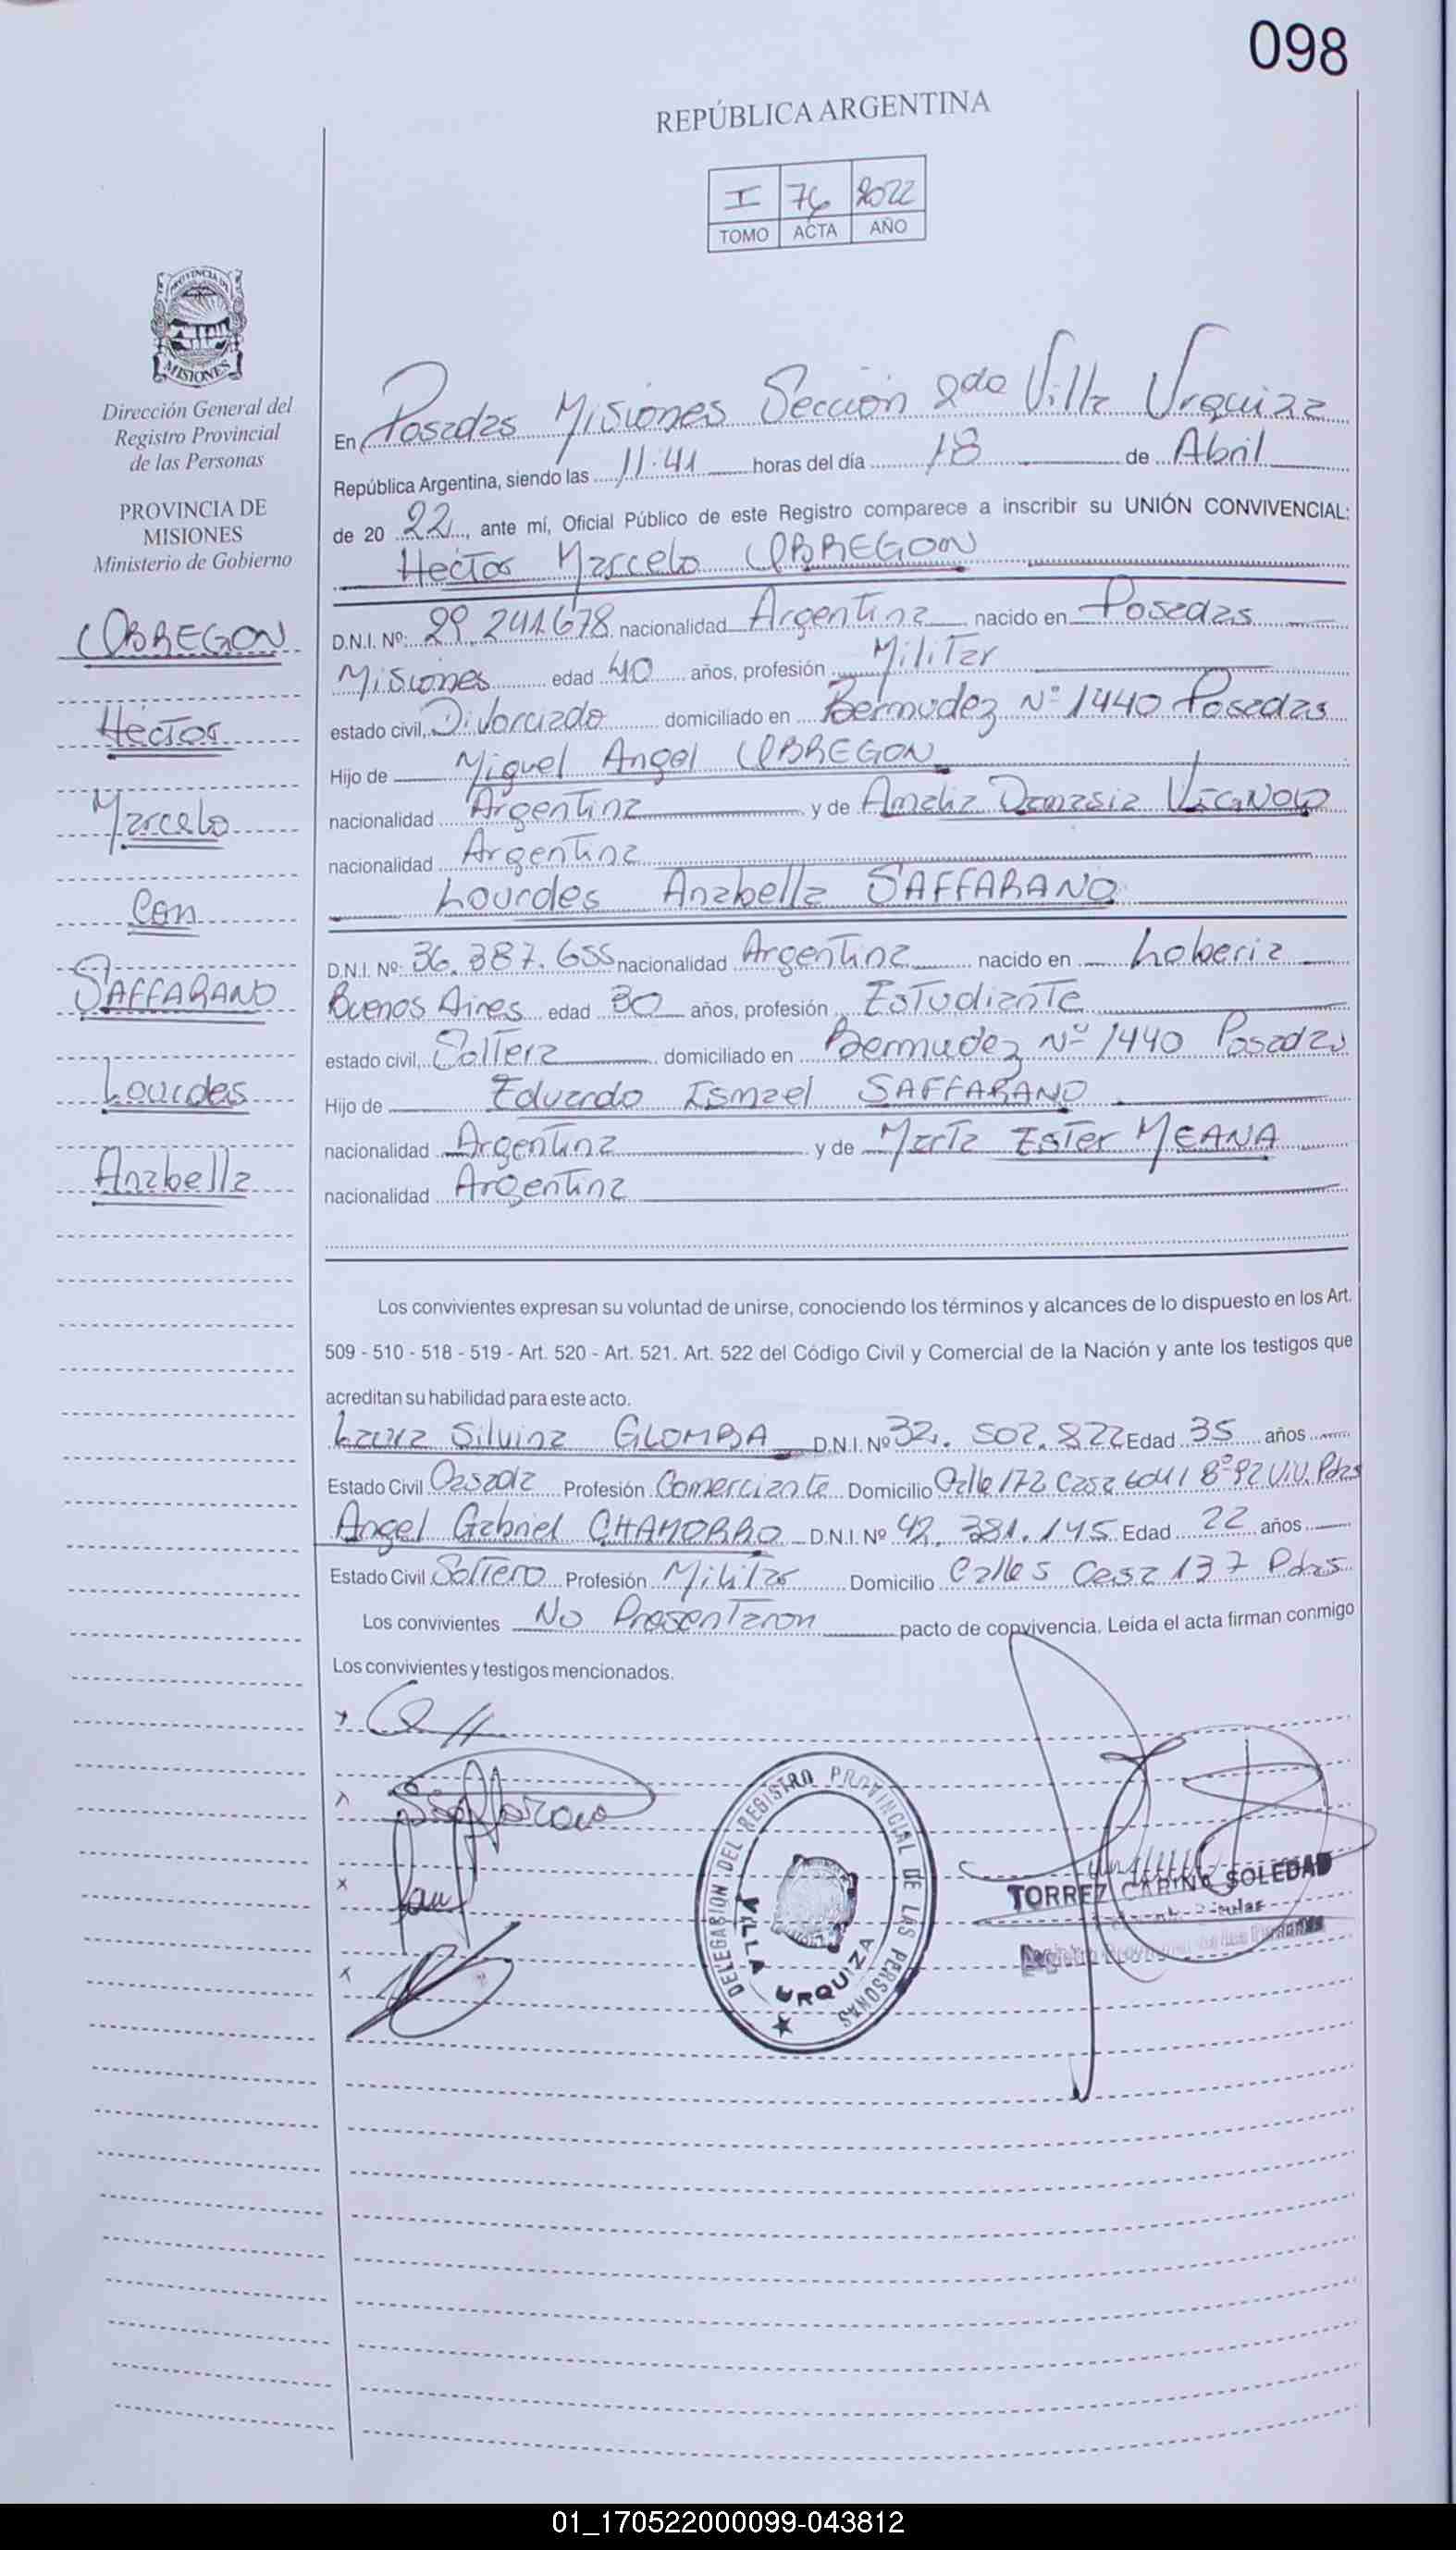 098
REPÚBLICA ARGENTINA
I 76 2022
TOMO ACTA AÑO
PROVINCIA DE
MISIONES
Dirección General del
Registro Provincial
de las Personas
PROVINCIA DE
MISIONES
Ministerio de Gobierno
OBREGON
Héctor
Marcelo
Con
SAFFARANO
Lourdes
Anabella
En Posadas Misiones Sección 2da Villa Urquiza
República Argentina, siendo las 11:41 horas del día 18 de Abril
de 20 22, ante mí, Oficial Público de este Registro comparece a inscribir su UNIÓN CONVIVENCIAL:
Hector Marcelo OBREGON
D.N.I. Nº: 29.241.678 nacionalidad Argentina nacido en Posadas
Misiones edad 40 años, profesión Militar
estado civil, Divorciado domiciliado en Bermudez Nº 1440 Posadas
Hijo de Miguel Angel OBREGON
nacionalidad Argentina y de Amalia Damasia
nacionalidad Argentina
Lourdes Anabella SAFFARANO
D.N.I. Nº: 36.387.655 nacionalidad Argentina nacido en Loberia
Buenos Aires edad 30 años, profesión Estudiante
estado civil, Soltera domiciliado en Bermudez Nº 1440 Posadas
Hijo de Eduardo Ismael SAFFARANO
nacionalidad Argentina y de Marta Ester MEANA
nacionalidad Argentina
Los convivientes expresan su voluntad de unirse, conociendo los términos y alcances de lo dispuesto en los Art.
509 - 510 - 518 - 519 - Art. 520 - Art. 521. Art. 522 del Código Civil y Comercial de la Nación y ante los testigos que
acreditan su habilidad para este acto.
Laura Silvina GLOMBA D.N.I. Nº 32.502.822 Edad 35 años
Estado Civil Casada Profesión Comerciante Domicilio Calle 172 Casa 6041 Bº 92 Viv. Pdas
Angel Gabriel CHAMORRO D.N.I. Nº 42.381.145 Edad 22 años
Estado Civil Soltero Profesión Militar Domicilio Calle 5 Casa 137 Pdas
Los convivientes No Presentaron pacto de convivencia. Leída el acta firman conmigo
Los convivientes y testigos mencionados.
Saffarano
DELEGACION DEL REGISTRO PROVINCIAL DE LAS PERSONAS
VILLA URQUIZA
TORREZ CARINA SOLEDAD
01_170522000099-043812